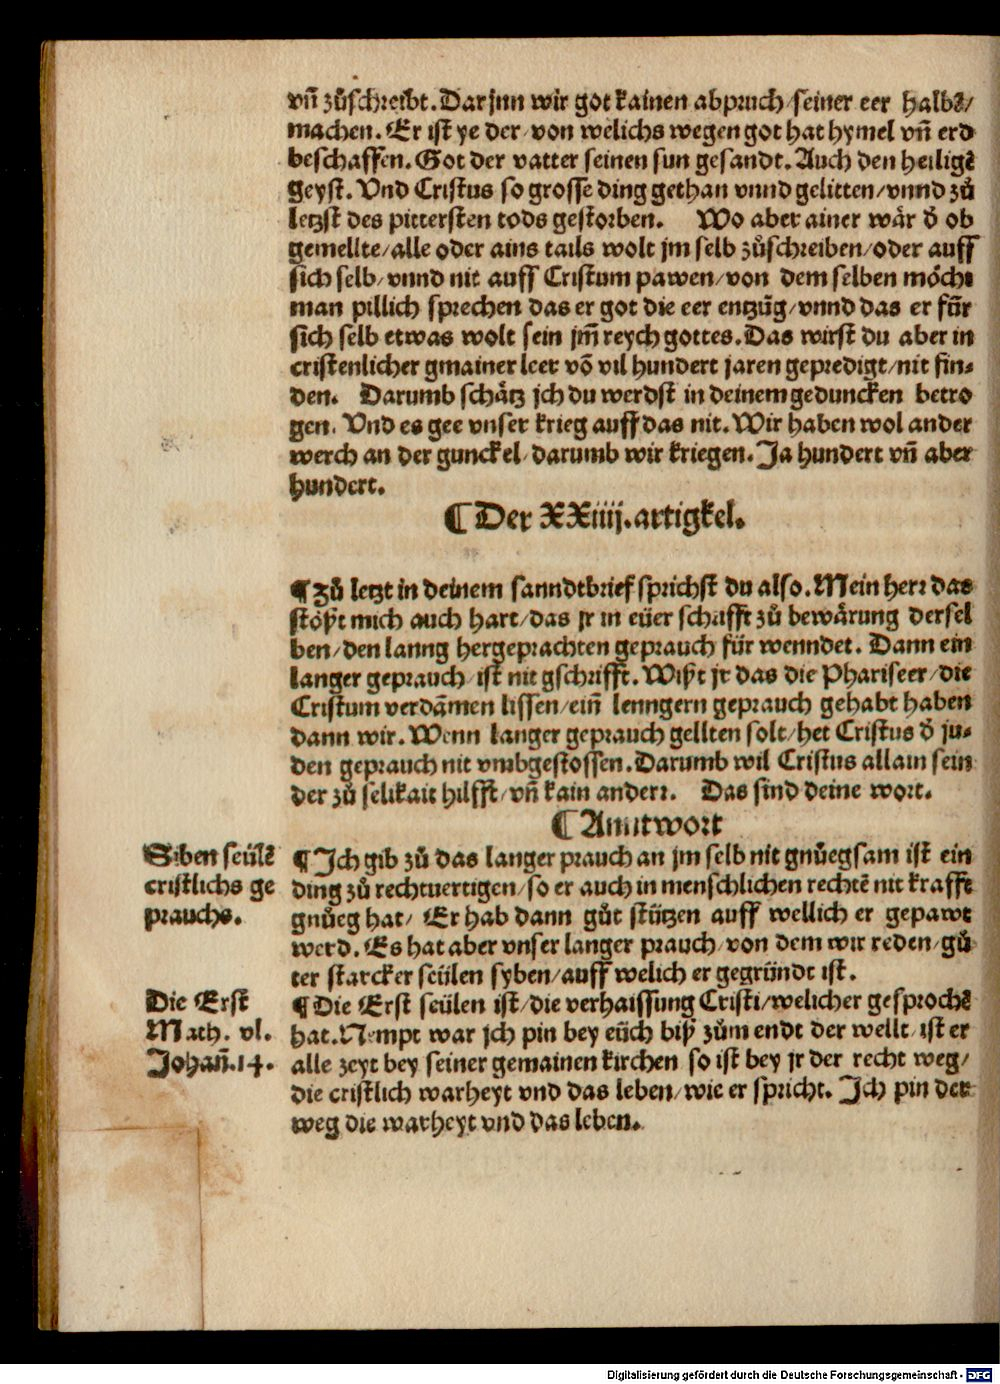 vn̄ zůschreibt. Darjnn wir got kainen abpruch/seiner eer halbē/
machen. Er ist ye der/von welichs wegen got hat hymel vn̄ erd
beschaffen. Got der vatter seinen sun gesandt. Auch den heiligē
geyst. Vnd Cristus so grosse ding gethan vnnd gelitten/vnnd zů
letzst des pittersten tods gestorben. Wo aber ainer wår d̕ ob
gemellte/alle oder ains tails wolt jm selb zůschreiben/oder auff
sich selb/vnnd nit auff Cristum pawen/von dem selben möcht
man pillich sprechen das er got die eer entzūg/vnnd das er für
sich selb etwas wolt sein jm̄ reych gottes. Das wirst du aber in
cristenlicher gmainer leer vō vil hundert jaren gepredigt/nit fin⸗
den. Darumb schåtz jch du werdst in deinem geduncken betro
gen. Vnd es gee vnser krieg auff das nit. Wir haben wol ander
werch an der gunckel/darumb wir kriegen. Ja hundert vn̄ aber
hundert.
¶ Der XXiiij. artigkel.
¶ Zů letzt in deinem sanndtbrief sprichst du also. Mein herr das
stößt mich auch hart/das jr in eüer schrifft zů bewårung dersel
ben/den lanng hergeprachten geprauch für wenndet. Dann ein
langer geprauch/ist nit gschrifft. Wißt jr das die Phariseer/die
Cristum verdāmen lissen/ein̄ lenngern geprauch gehabt haben
dann wir. Wenn langer geprauch gellten solt/het Cristus d̕ ju⸗
den geprauch nit vmbgestossen. Darumb wil Cristus allain sein
der zů selikait hilfft/vn̄ kain anderr. Das sind deine wort.
¶ Anntwort
Siben seülē
cristlichs ge
prauchs.
¶ Jch gib zů das langer prauch an jm selb nit gnůegsam ist ein
ding zů rechtuertigen/so er auch in menschlichen rechtē nit krafft
gnůeg hat/ Er hab dann gůt stützen auff wellich er gepawt
werd. Es hat aber vnser langer prauch/von dem wir reden/gů
ter starcker seülen syben/auff welich er gegründt ist.
Die Erst
Math. vl.
Johan̄. 14.
¶ Die Erst seülen ist/die verhaissung Cristi/welicher gesprochē
hat. Nempt war jch pin bey eüch biß zům endt der wellt/ist er
alle zeyt bey seiner gemainen kirchen so ist bey jr der recht weg/
die cristlich warheyt vnd das leben/wie er spricht. Jch pin der
weg die warheyt vnd das leben.
Digitalisierung gefördert durch die Deutsche Forschungsgemeinschaft - DFG